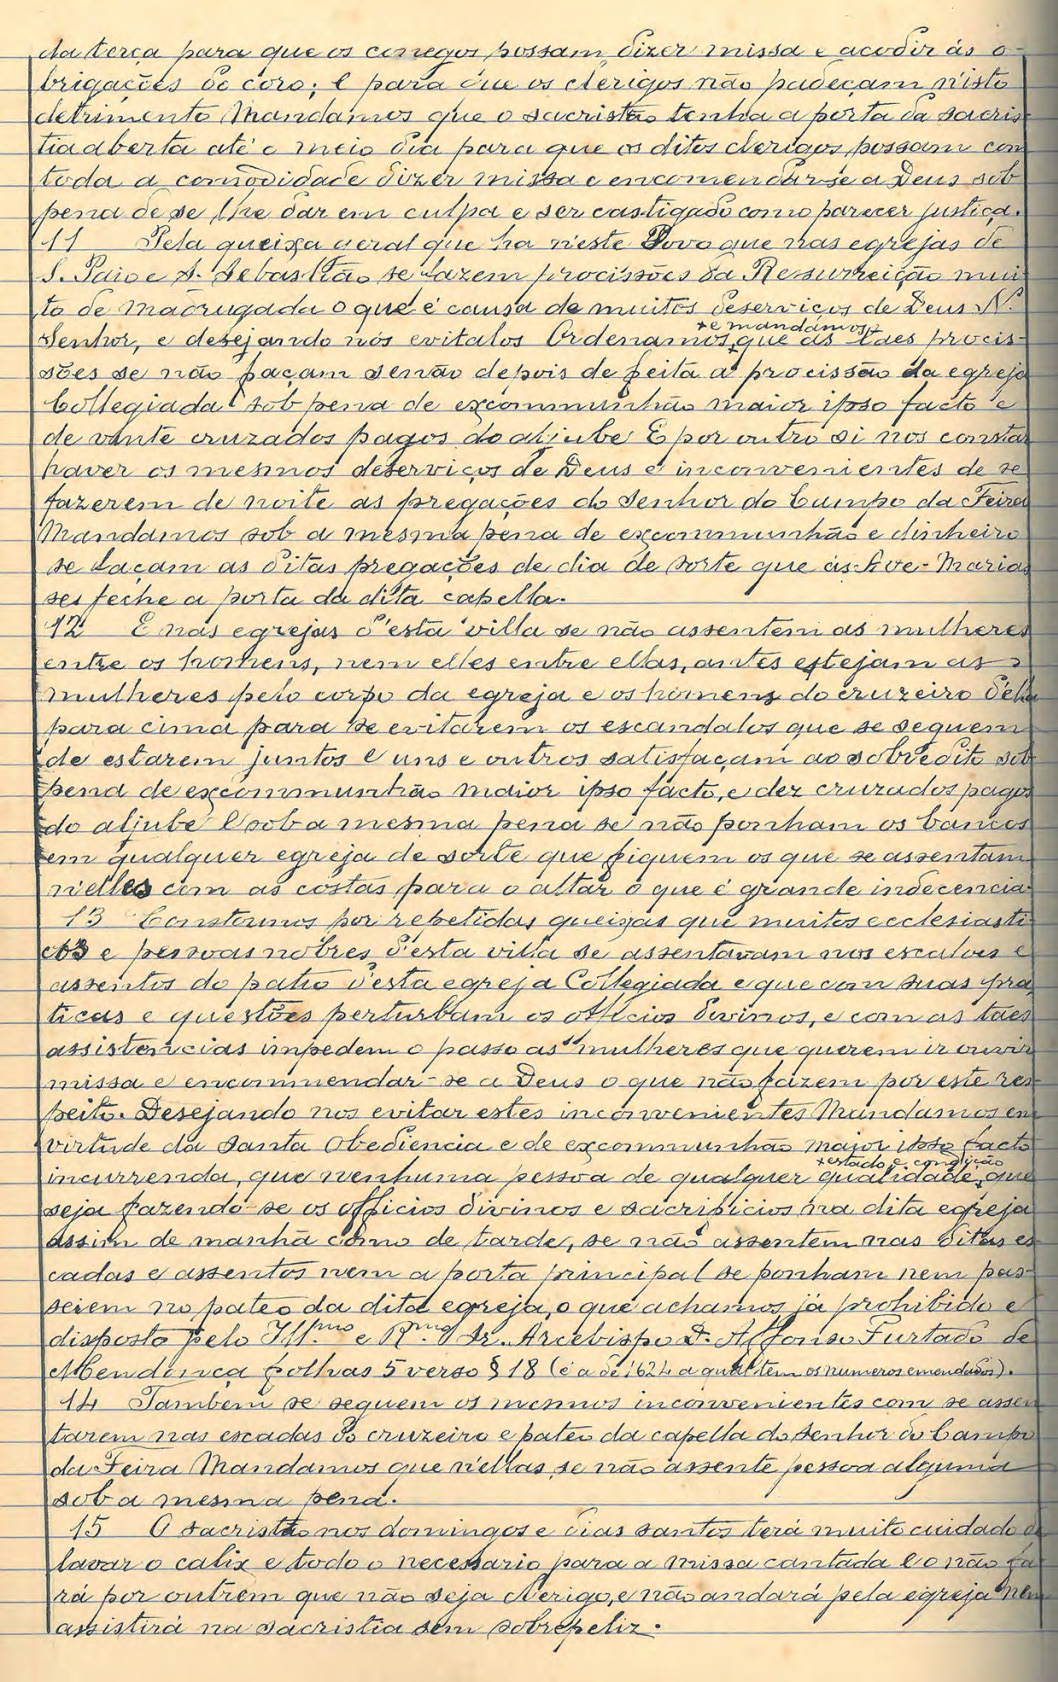 da terça para que os conegos possam dizer missa e acodir ás o-
brigações do côro; E para que os clerigos não padeçam n'isto
detrimento Mandamos que o sacristão tenha a porta da sacris-
tia aberta até o meio dia para que os ditos clerigos possam com
toda a comodidade dizer missa e encomendar-se a Deus sob
pena de se lhe dar em culpa e ser castigado como parecer justiça.
11 Pela queixa geral que ha n'este Povo que nas egrejas de
S. Paio e S. Sebastião se fazem procissões da Resurreição mui-
to de madrugada o que é causa de muitos deserviços de Deus N.
Senhor, e desejando nós evitalos Ordenamos + e mandamos + que as taes procis-
sões se não façam senão depois de feita a procissão da egreja
Collegiada sob pena de excommunhão maior ipso facto e
de vinte cruzados pagos do aljube E por outro si nos constar
haver os mesmos deserviços de Deus e inconvenientes de se
fazerem de noite as pregações do Senhor do Campo da Feira
Mandamos sob a mesma pena de excommunhão e dinheiro
se façam as ditas pregações de dia de sorte que ás Ave-Marias
se feche a porta da dita capella.
12 E nas egrejas d'esta villa se não assentem as mulheres
entre os homens, nem elles entre ellas, antes estejam as
mulheres pelo corpo da egreja e os homens do cruzeiro d'ella
para cima para se evitarem os escandalos que se seguem
de estarem juntos E uns e outros satisfaçam ao sobredito sob
pena de excommunhão maior ipso facto, e dez cruzados pagos
do aljube E sob a mesma pena se não ponham os bancos
em qualquer egreja de sorte que fiquem os que se assentam
n'elles com as costas para o altar o que é grande indecencia.
13 Constounos por repetidas queixas que muitos ecclesiasti-
cos e pessoas nobres d'esta villa se assentavam nas escadas e
assentos do patio d'esta egreja Collegiada e que com suas pra-
ticas e questões perturbam os officios divinos, e com as taes
assistencias impedem o passo as mulheres que querem ir ouvir
missa e encommendar-se a Deus o que não fazem por este res-
peito. Desejando nos evitar estes inconvenientes Mandamos em
virtude da Santa Obediencia e de excommunhão maior ipso facto
incurrenda, que nenhuma pessoa de qualquer qualidade + estado e condição + que
seja fazendo-se os officios divinos e sacrificios na dita egreja
assim de manhã como de tarde, se não assentem nas ditas es-
cadas e assentos nem a porta principal se ponham nem pas-
seiem no pateo da dita egreja, o que achamos já prohibido e
disposto pelo Ill.mo e R.mo Sr. Arcebispo D. Affonso Furtado de
Mendonça folhas 5 verso § 18 (é a de 1624 a qual tem os numeros emendados).
14 Tambem se seguem os mesmos inconvenientes com se assen-
tarem nas escadas do cruzeiro e pateo da capella do Senhor do Campo
da Feira Mandamos que n'ellas se não assente pessoa alguma
sob a mesma pena.
15 O sacristão nos domingos e dias santos terá muito cuidado de
lavar o calix e todo o necessario para a missa cantada e o não fa-
rá por outrem que não seja clerigo, e não andará pela egreja nem
assistirá na sacristia sem sobrepeliz.